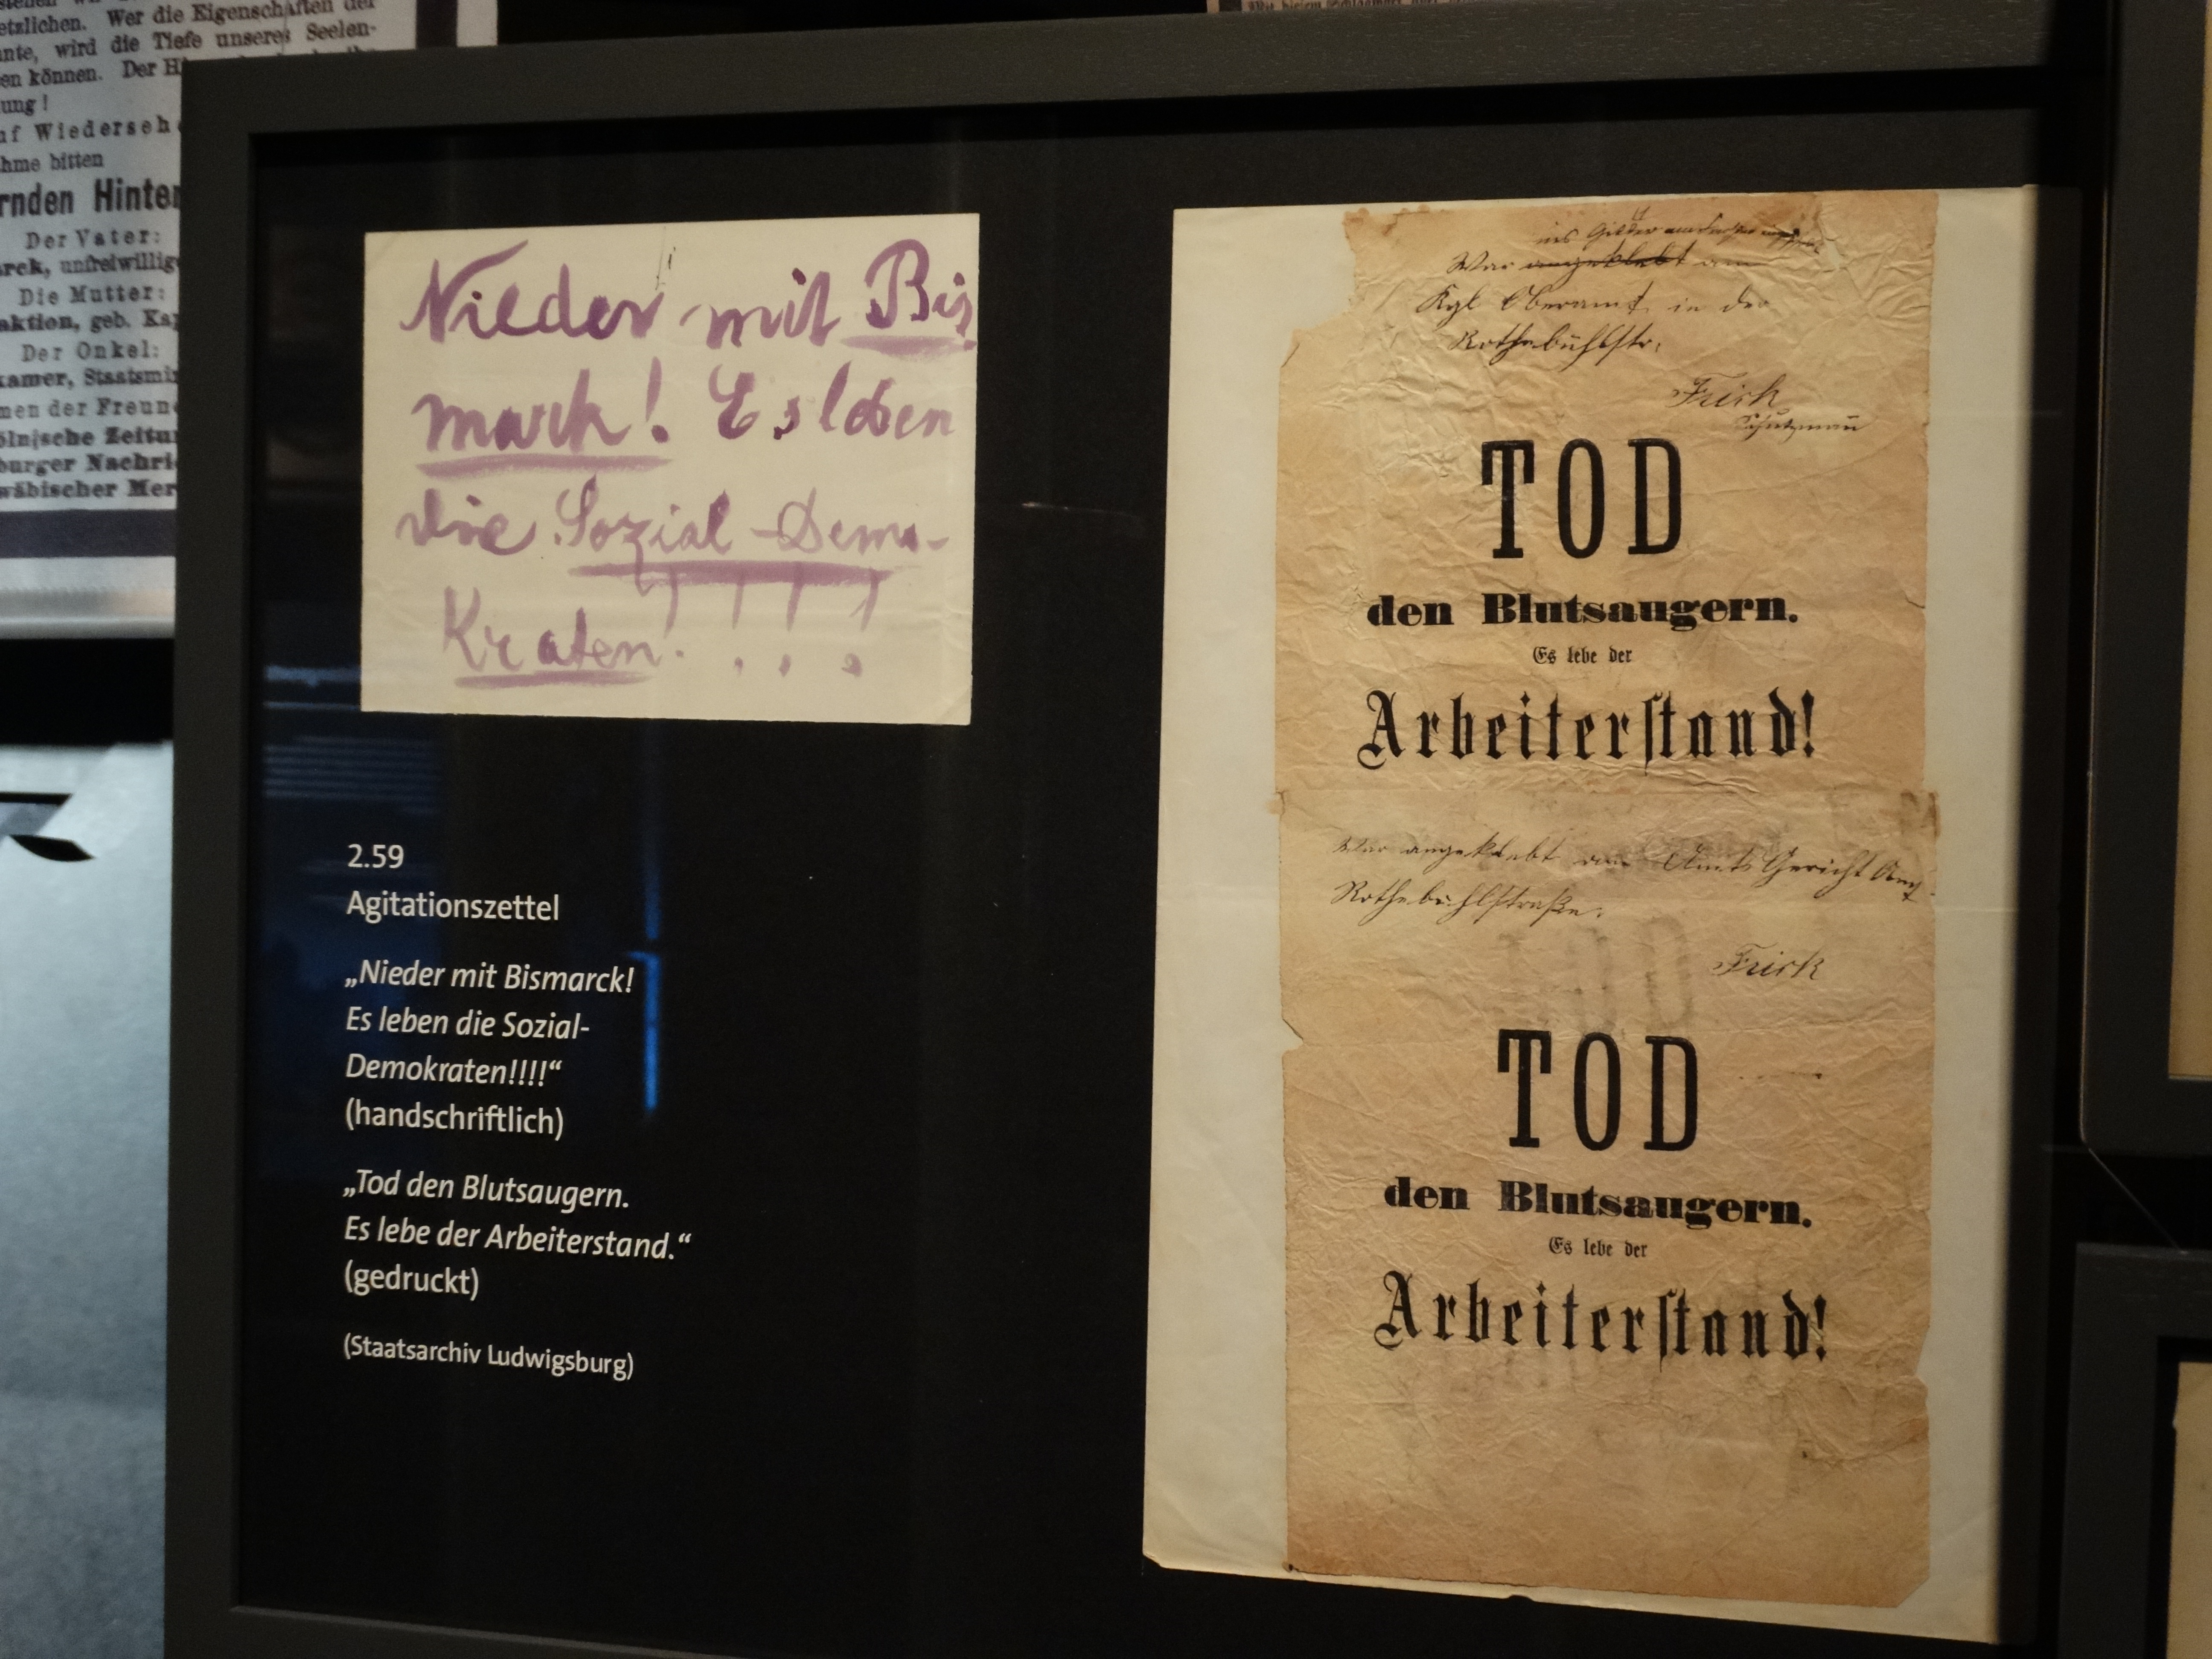 etzlichen. Wer die Eigenschaften der
nte, wird die Tiefe unseres Seelen-
en können. Der
ung!
uf Wiederseh
hme bitten
rnden Hinter
Der Vater:
arck, unfreiwillig
Die Mutter:
aktion, geb. Ka
Der Onkel:
kamer, Staatsmi
men der Freun
ölnische Zeitu
burger Nachri
wäbischer Mer
Nieder mit Bis
marck! Es leben
die Sozial-Demo-
Kraten!!!!
2.59
Agitationszettel
„Nieder mit Bismarck!
Es leben die Sozial-
Demokraten!!!!“
(handschriftlich)
„Tod den Blutsaugern.
Es lebe der Arbeiterstand.“
(gedruckt)
(Staatsarchiv Ludwigsburg)
War angeklebt am
Kgl Oberamt in der
Rothebühlstr.
Frick
Schutzmann
TOD
den Blutsaugern.
Es lebe der
Arbeiterstand!
War angeklebt am Amts Gericht
Rothebühlstraße.
Frick
TOD
den Blutsaugern.
Es lebe der
Arbeiterstand!